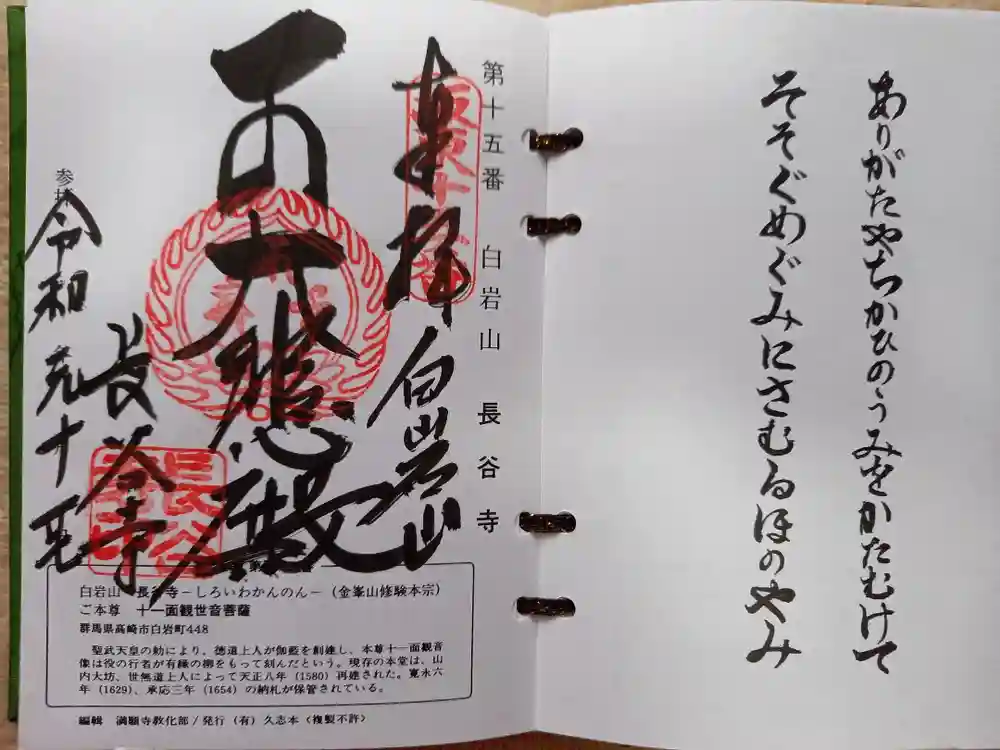 ありがたやちかひのうみをかたむけて
そそぐめぐみにさむるほのやみ
第十五番 白岩山 長谷寺
奉拝 白岩山
大悲殿
長谷寺
令和元十
白岩山 長谷寺－しろいわかんのん－（金峯山修験本宗）
ご本尊 十一面観世音菩薩
群馬県高崎市白岩町448
聖武天皇の勅により、徳道上人が伽藍を創建し、本尊十一面観音
像は役の行者が有縁の柳をもって刻んだという。現存の本堂は、山
内大坊、世無道上人によって天正八年（1580）再建された。寛永六
年（1629）、承応三年（1654）の納札が保管されている。
編輯 満願寺教化部/発行（有）久志本〈複製不許〉